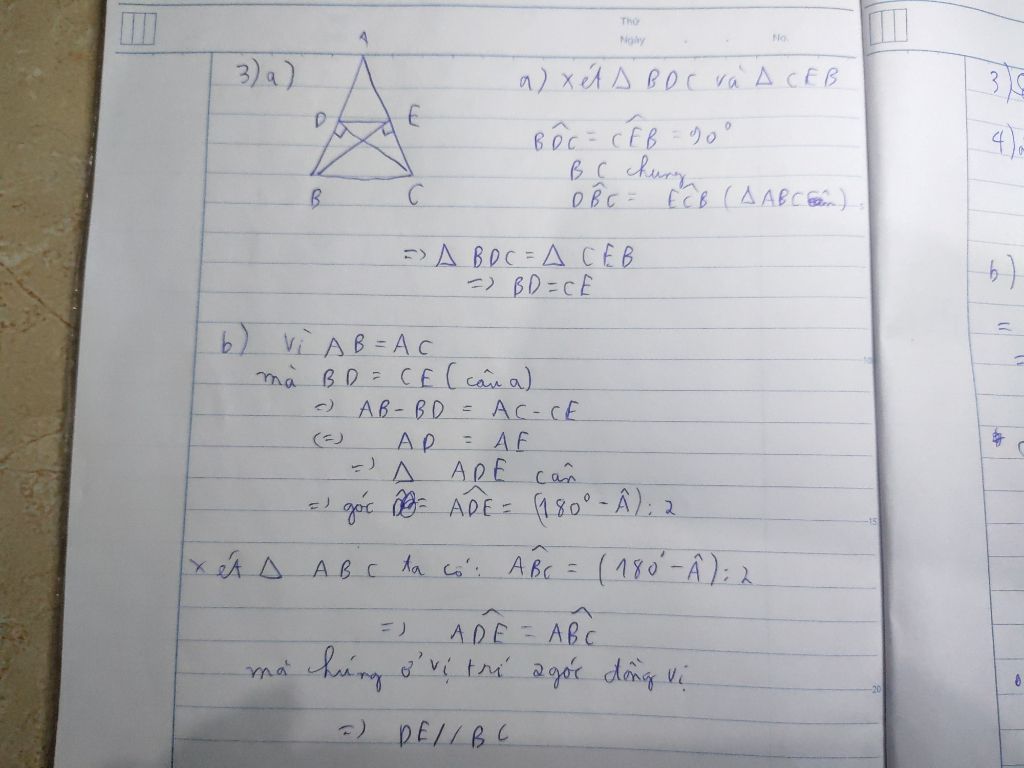 Thứ
Ngày . . No.
3) a)
A
D E
B C
a) xét Δ BDC và Δ CEB
BD̂C = CÊB = 90°
BC chung
DB̂C = EĈB (ΔABC cân)
=> Δ BDC = Δ CEB
=> BD = CE
b) Vì AB = AC
mà BD = CE (câu a)
=> AB - BD = AC - CE
(=) AD = AE
=> Δ ADE cân
=> góc AD̂E = (180° - Â) : 2
xét Δ ABC ta có: AB̂C = (180° - Â) : 2
=> AD̂E = AB̂C
mà chúng ở vị trí 2 góc đồng vị
=> DE // BC
10
15
20
3)
4)
b)
=
=